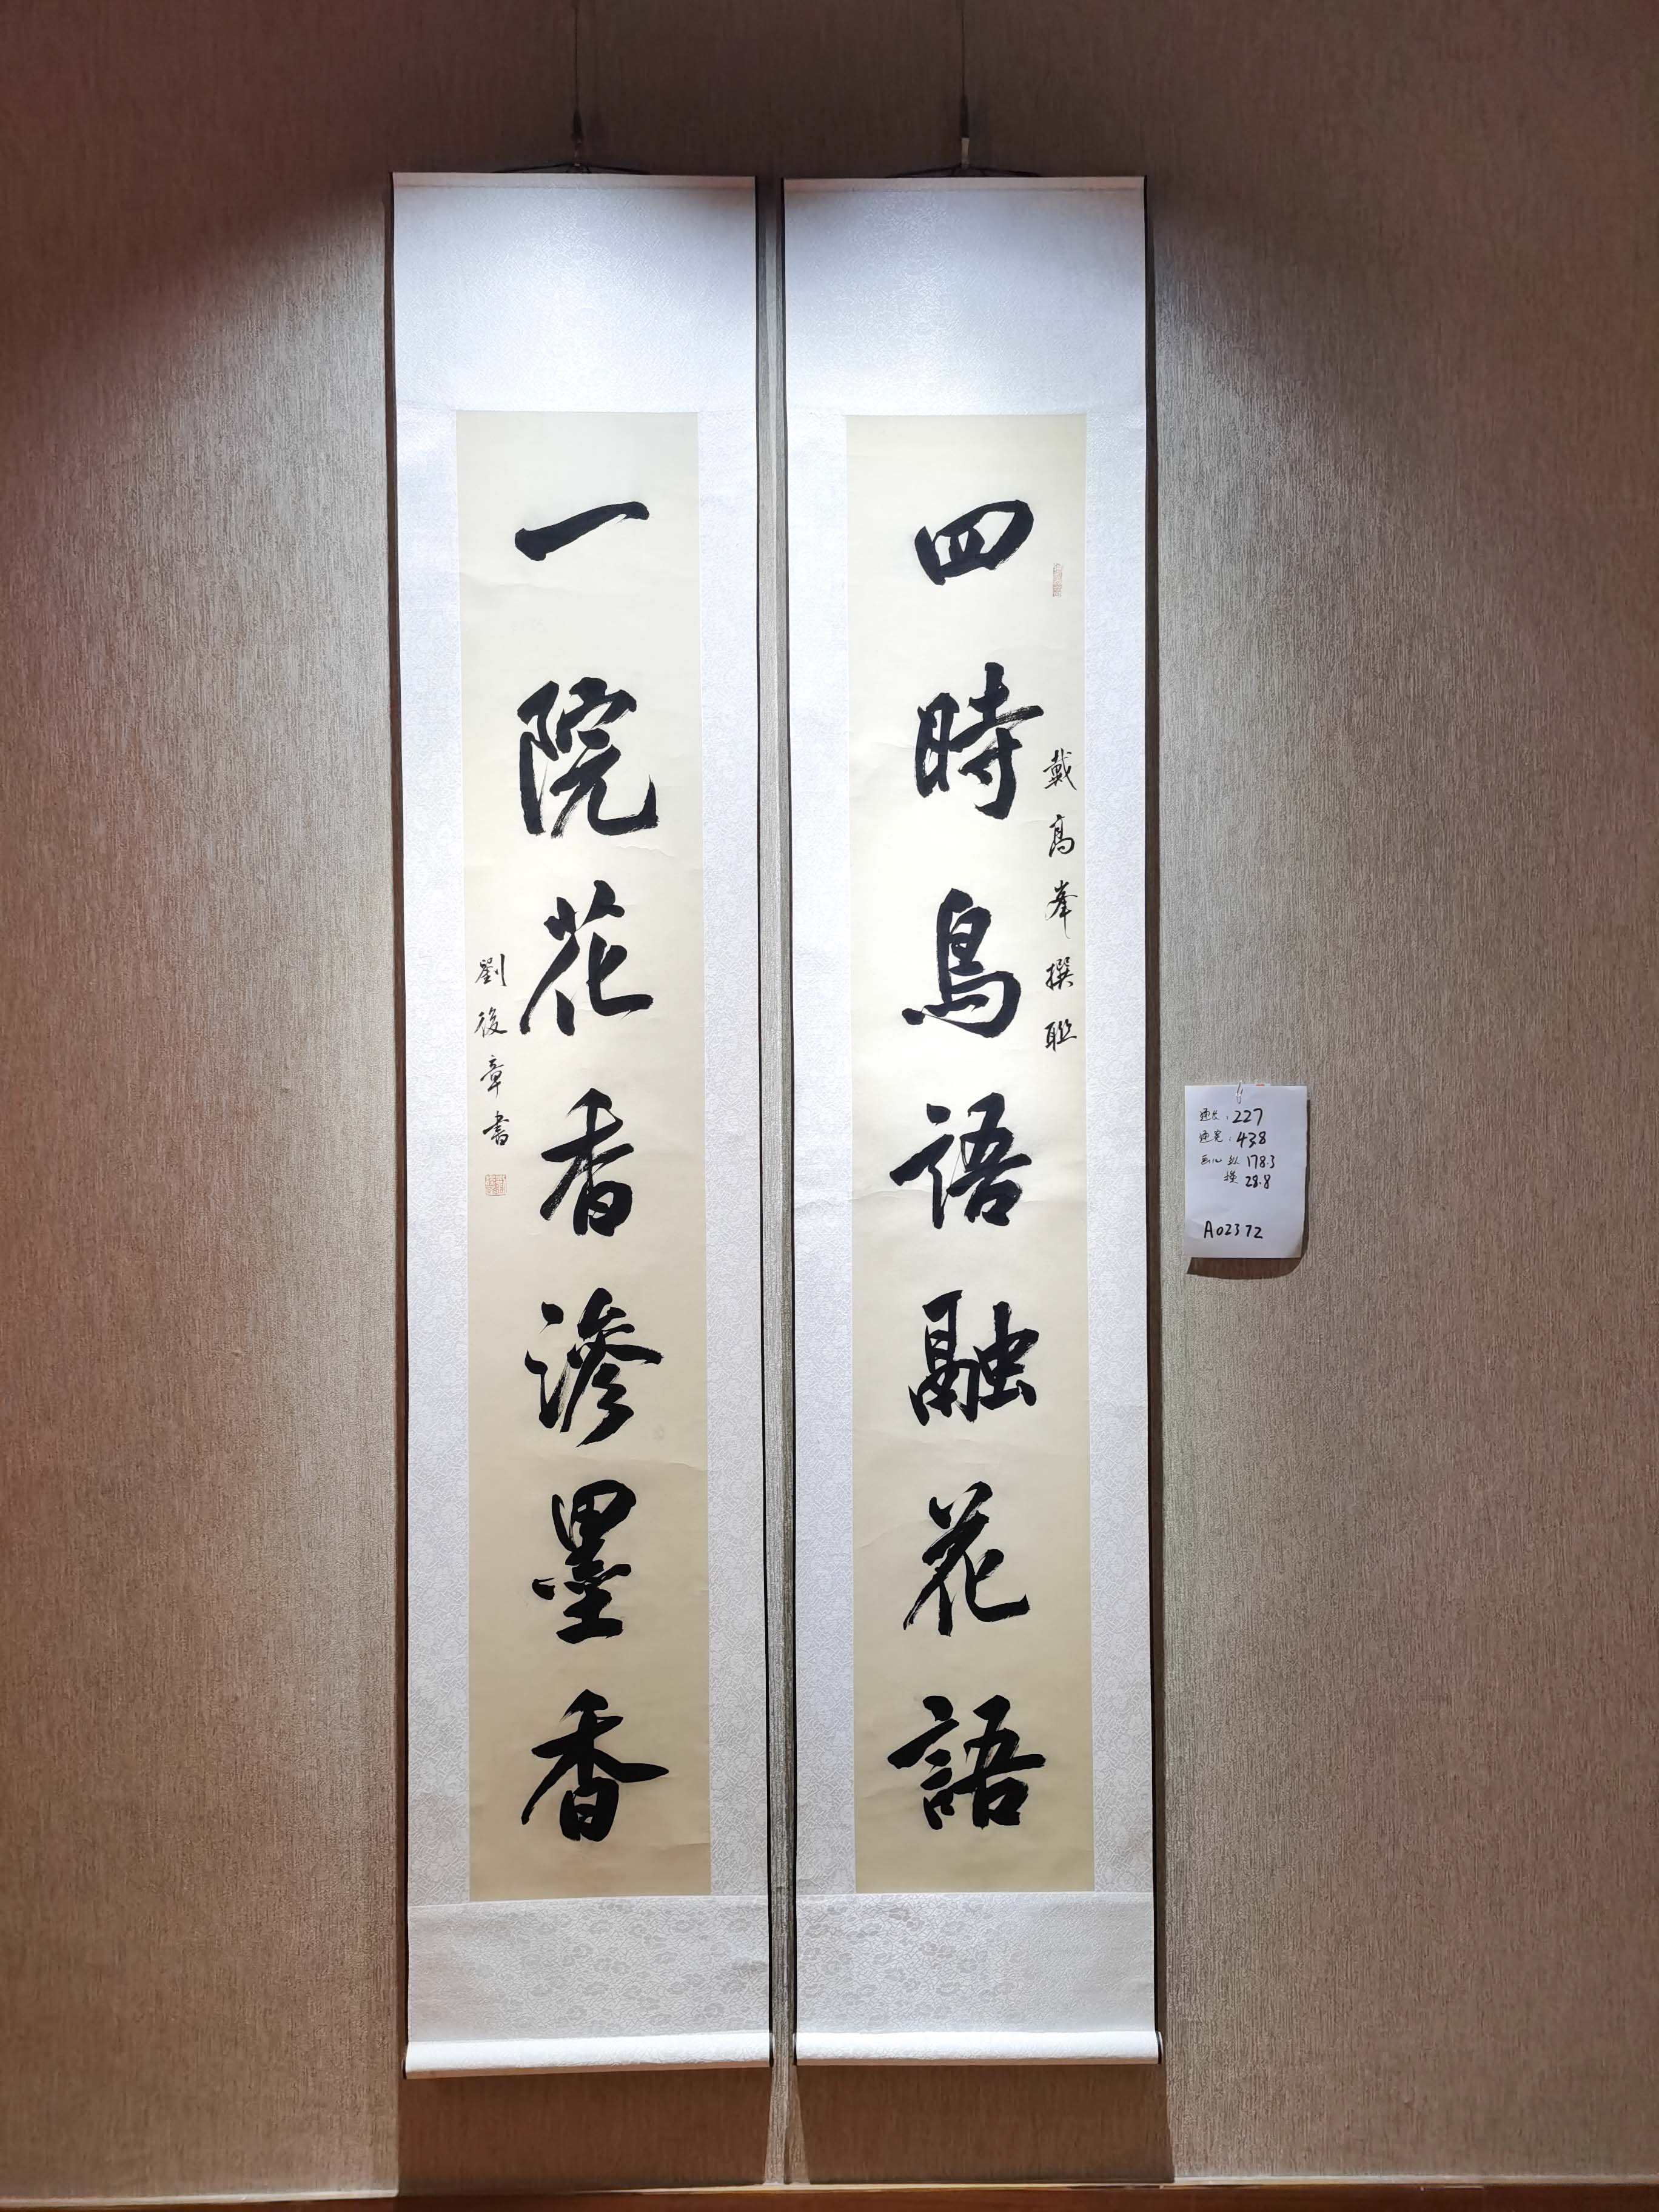 四時鳥語融花語
戴高峯撰聯
一院花香滲墨香
劉後章書
通长：227
通宽：43.8
画心 纵 178.3
横 28.8
A02372